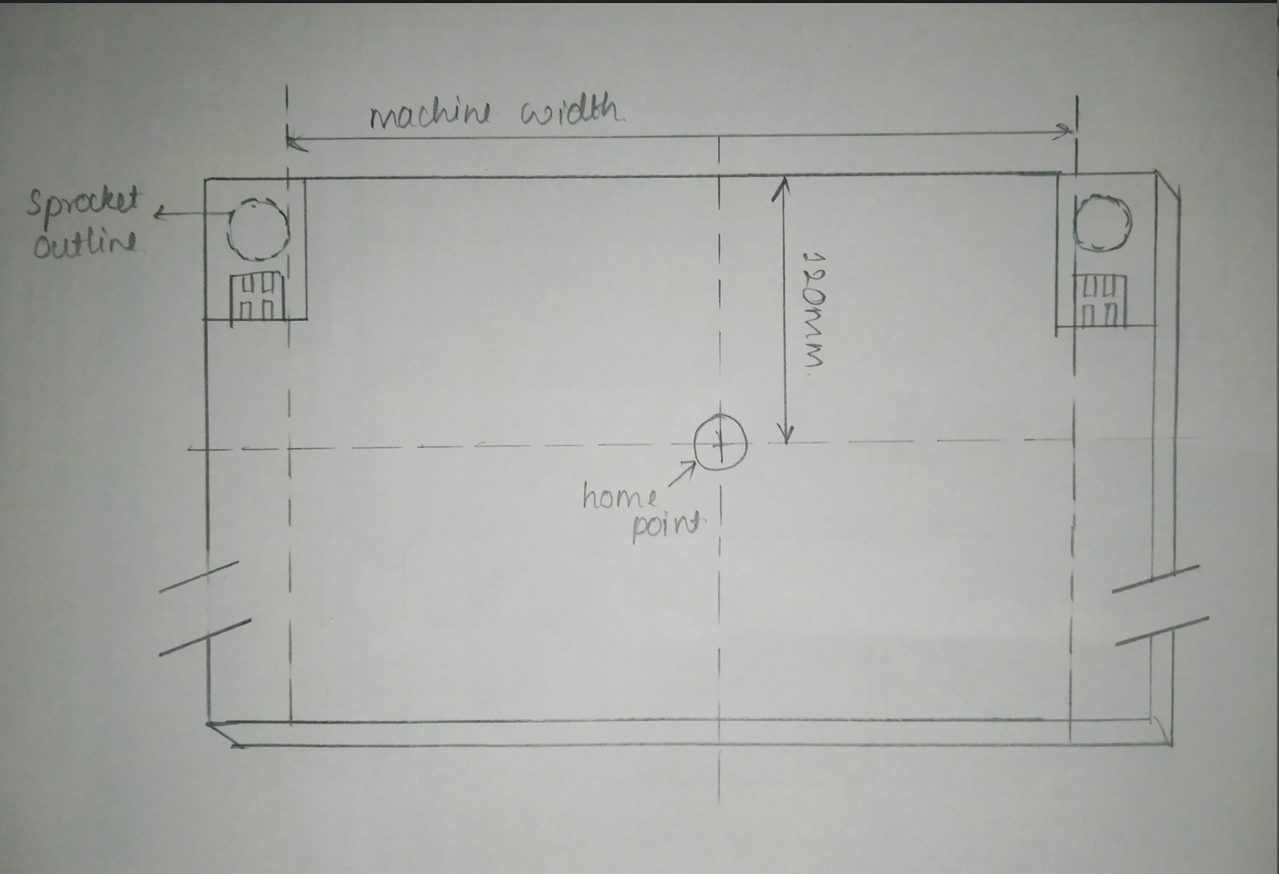 machine width
Sprocket
outline
120mm.
home
point